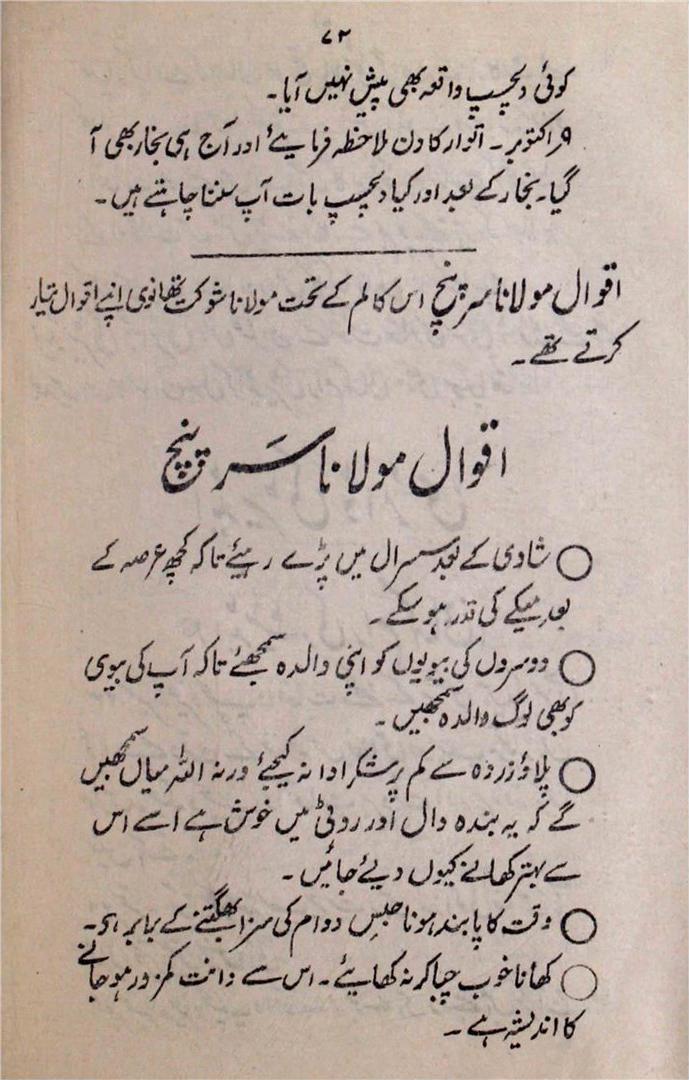 ۷۲
کوئی دلچسپ واقعہ بھی پیش نہیں آیا۔
۹ر اکتوبر۔ اتوار کا دن ملاحظہ فرمایئے اور آج ہی بخار بھی آ
گیا۔ بخار کے بعد اور کیا دلچسپ بات آپ سننا چاہتے ہیں۔
اقوال مولانا سرپنچ اس کالم کے تحت مولانا شوکت تھانوی اپنے اقوال تیار
کرتے تھے۔
اقوال مولانا سَرپنچ
○ شادی کے بعد سسرال میں پڑے رہیئے تاکہ کچھ عرصہ کے
بعد میکے کی قدر ہو سکے۔
○ دوسروں کی بیویوں کو اپنی والدہ سمجھئے تاکہ آپ کی بیوی
کو بھی لوگ والدہ سمجھیں۔
○ پلاؤ زردہ سے کم پر شکر ادا نہ کیجیے ورنہ اللہ میاں سمجھیں
گے کہ یہ بندہ دال اور روٹی میں خوش ہے اسے اس
سے بہتر کھانے کیوں دیئے جائیں۔
○ وقت کا پابند ہونا حبس دوام کی سزا بھگتنے کے برابر ہی۔
○ کھانا خوب چبا کر نہ کھایئے۔ اس سے دانت کمزور ہو جانے
کا اندیشہ ہے۔